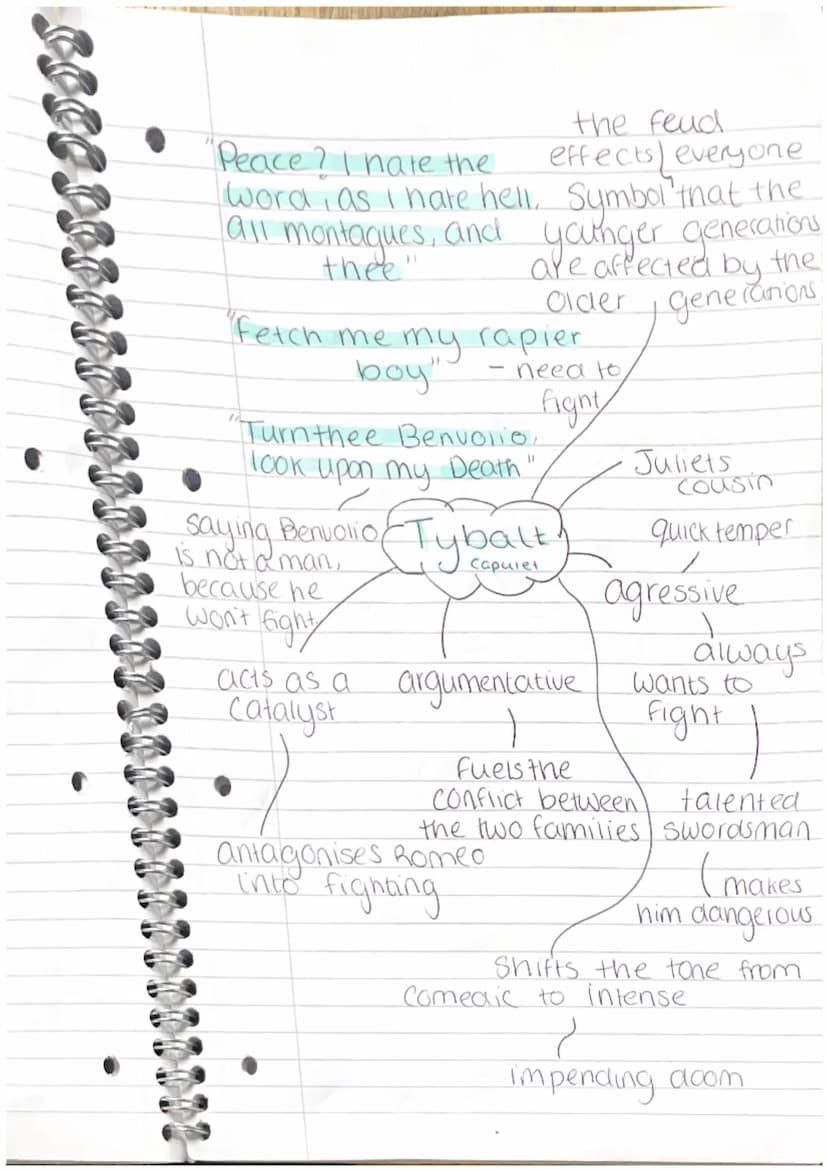 "Peace? I hate the
word, as I hate hell,
all montagues, and
thee"
the feud
effects everyone
Symbol that the
younger generations
are affected by the
older generations
"Fetch me my rapier
boy" - need to
fight
"Turn thee Benvolio,
look upon my Death"
saying Benvolio
is not a man,
because he
won't fight.
Tybalt
Capulet
Juliets
cousin
quick temper
agressive
always
wants to
fight
talented
swordsman
makes
him dangerous
acts as a
catalyst
antagonises Romeo
into fighting
argumentative
Fuels the
conflict between
the two families
Shifts the tone from
comedic to intense
impending doom